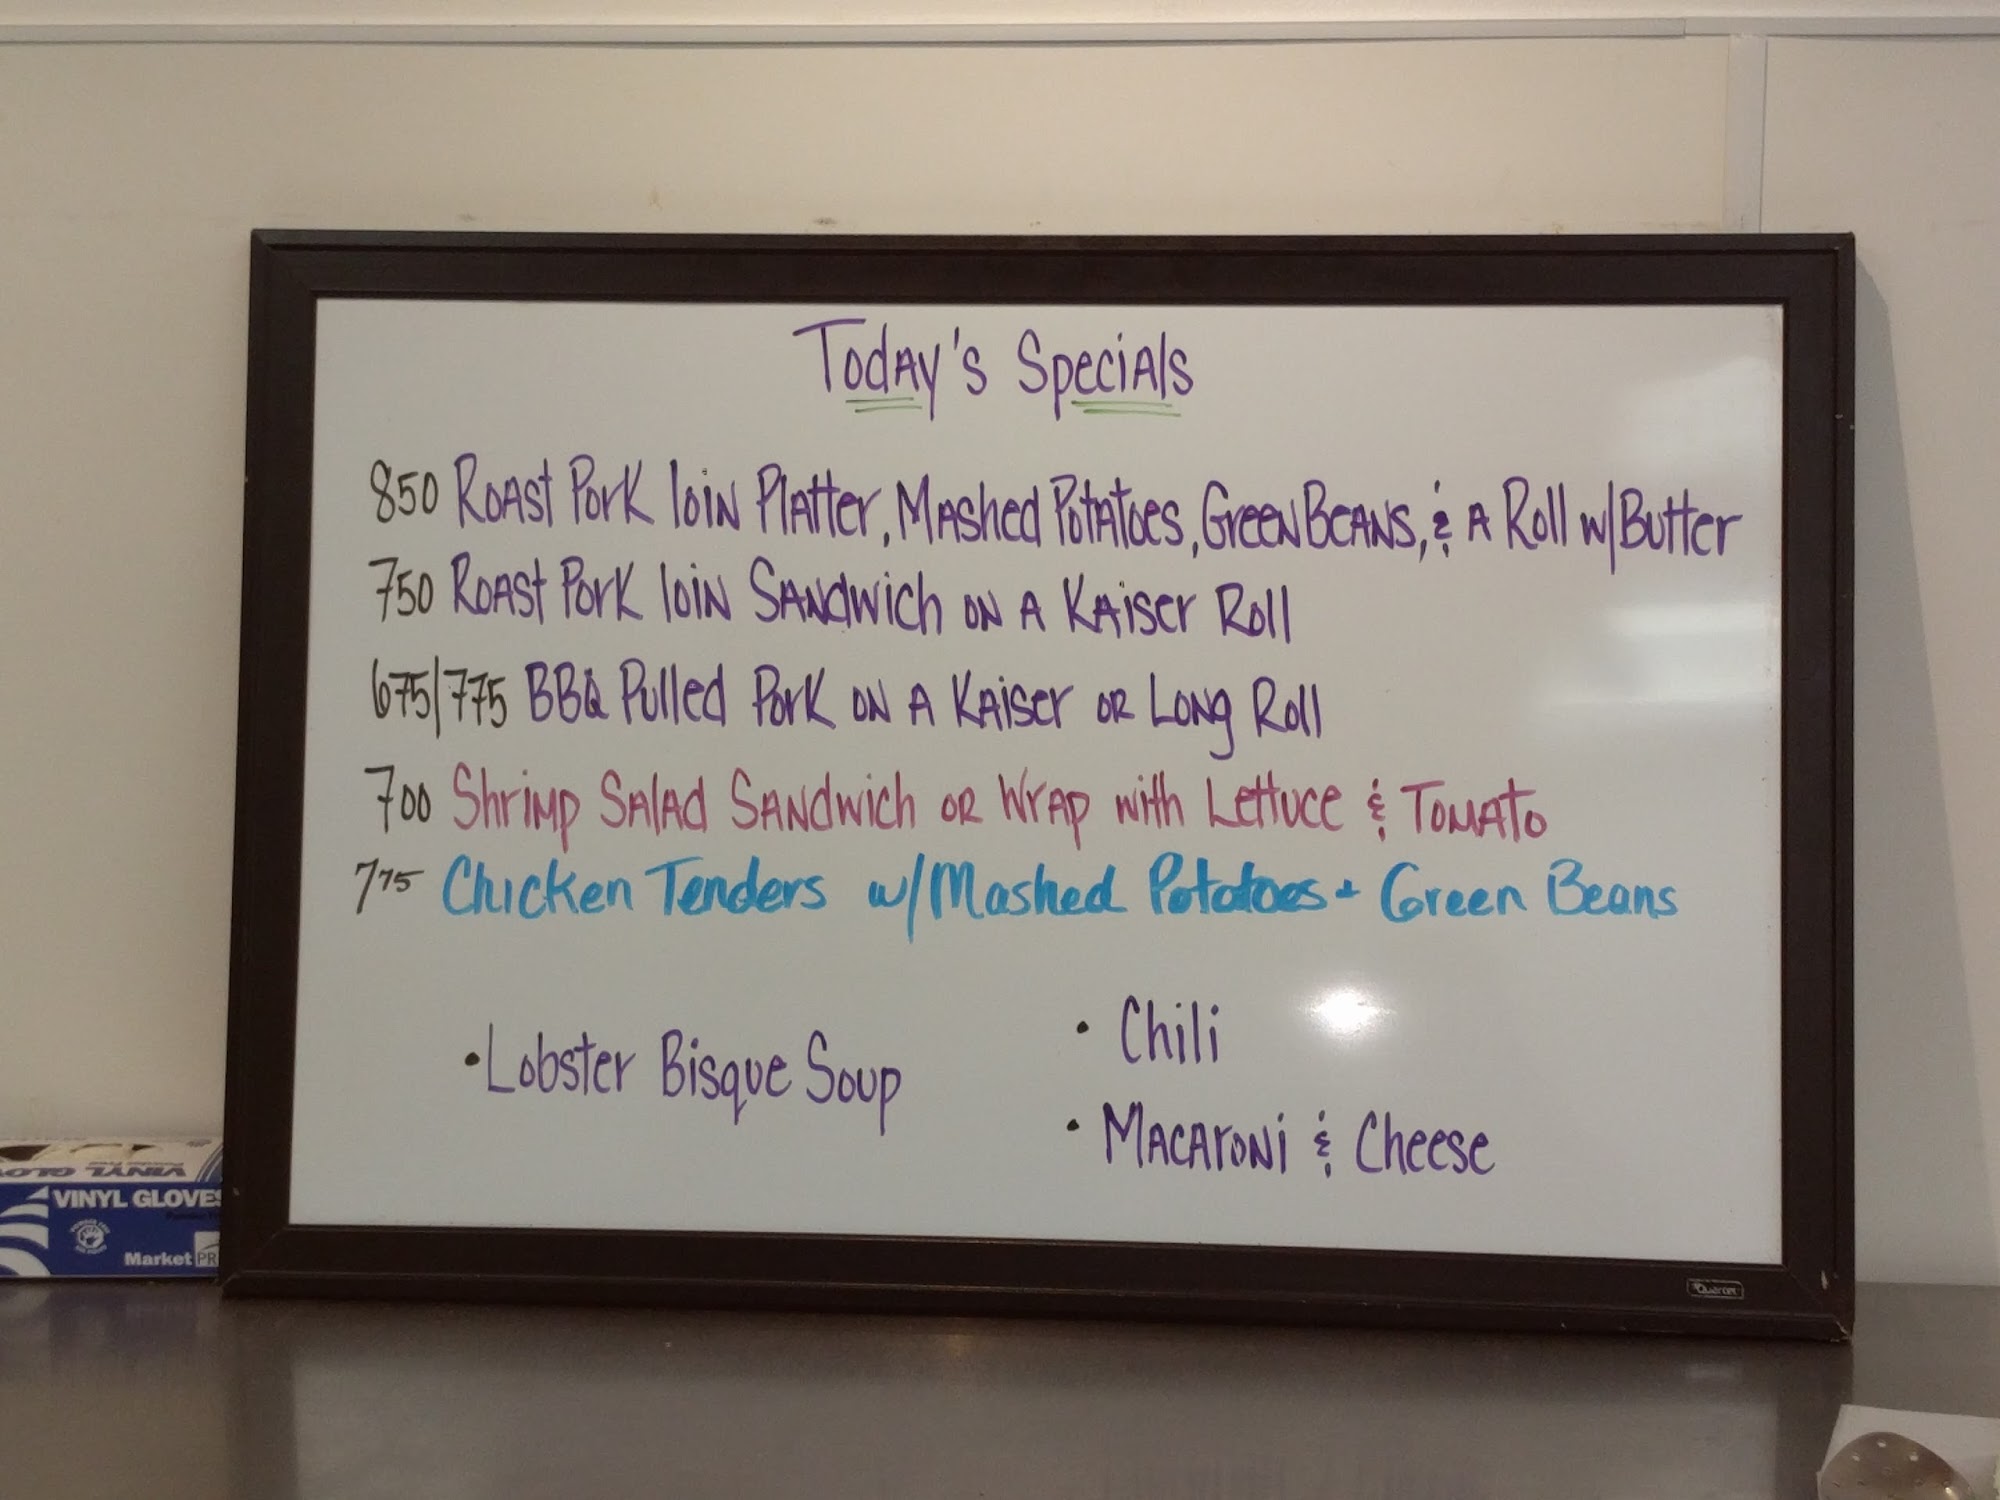 Today's Specials
850 Roast Pork loin Platter, Mashed Potatoes, Green Beans, & A Roll w/Butter
750 Roast Pork loin Sandwich on A Kaiser Roll
675/775 BBQ Pulled Pork on A Kaiser or Long Roll
700 Shrimp Salad Sandwich or Wrap with Lettuce & Tomato
775 Chicken Tenders w/Mashed Potatoes + Green Beans
• Lobster Bisque Soup
• Chili
• Macaroni & Cheese
VINYL GLO
VINYL GLOVES
Market PR
Quartet